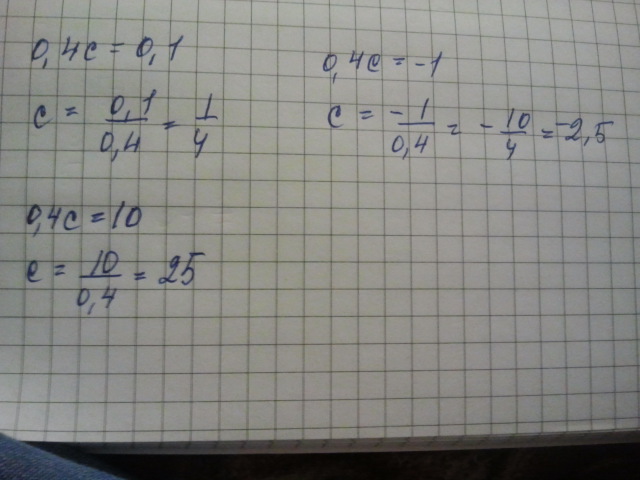 0,4c = 0,1
c = 0,1/0,4 = 1/4
0,4c = 10
c = 10/0,4 = 25
0,4c = -1
c = -1/0,4 = -10/4 = -2,5